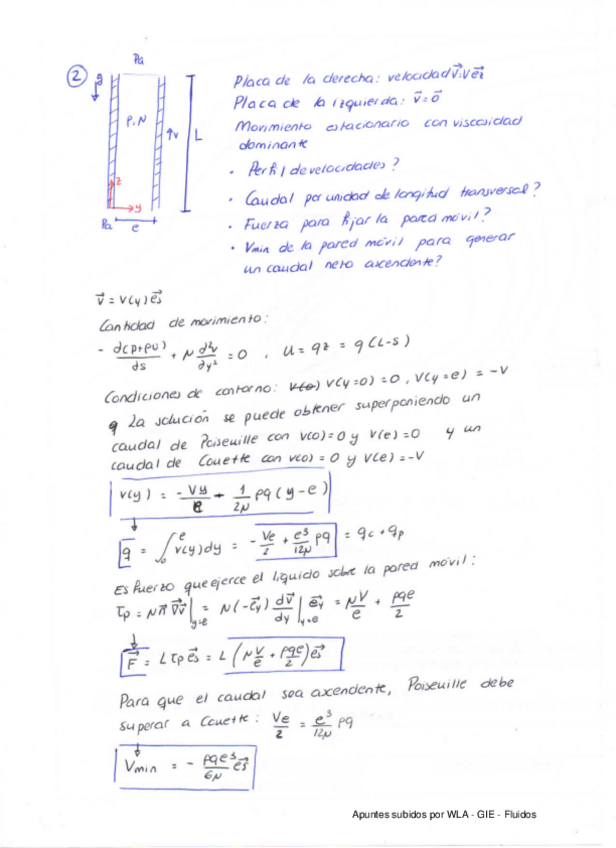 2
Pa
g
P, N
↑v
L
z
y
Pa
e
Placa de la derecha: velocidad v⃗=v e⃗z
Placa de la izquierda: v⃗=0⃗
Movimiento estacionario con viscosidad
dominante
• Perfil de velocidades?
• Caudal por unidad de longitud transversal?
• Fuerza para fijar la pared móvil?
• Vmin de la pared móvil para generar
un caudal neto ascendente?
v⃗ = v(y) e⃗s
Cantidad de movimiento:
- d(p+ρU)/ds + N d²v/dy² = 0 , U = gz = g(L-s)
Condiciones de contorno: v(y=0) = 0, v(y=e) = -V
La solución se puede obtener superponiendo un
caudal de Poiseuille con v(0)=0 y v(e)=0 y un
caudal de Couette con v(0) = 0 y v(e)=-V
v(y) = -Vy/e - 1/2N ρg(y-e)
q = ∫₀ᵉ v(y)dy = - Ve/2 + e³/12N ρg = qc + qp
Esfuerzo que ejerce el líquido sobre la pared móvil:
τp = N n⃗ ∇v⃗|y=e = N(-e⃗y) dv⃗/dy|y=e e⃗y = NV/e + ρge/2
F⃗ = L τp e⃗s = L (NV/e + ρge/2) e⃗s
Para que el caudal sea ascendente, Poiseuille debe
superar a Couette: Ve/2 = e³/12N ρg
Vmin = - ρge³/6N e⃗s
Apuntes subidos por WLA - GIE - Fluidos